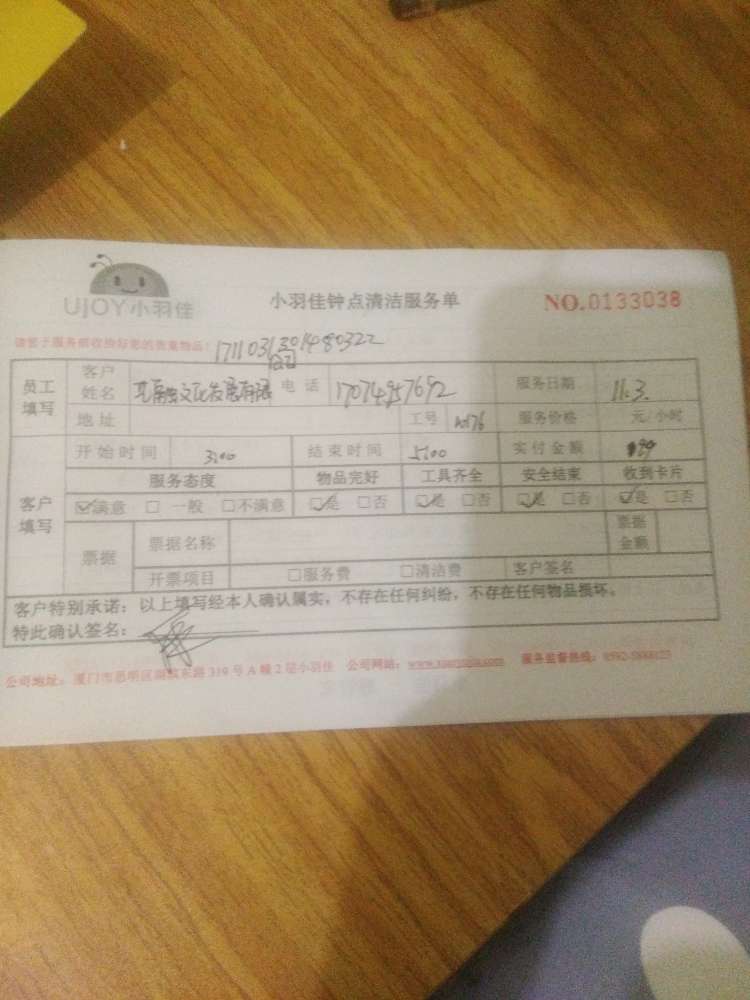 UJOY小羽佳
小羽佳钟点清洁服务单
NO.0133038
请您于服务前收拾好您的贵重物品!
员工填写
客户姓名 文化发展有限 电话 17074957692 服务日期 11.3.
地址 工号 服务价格 元/小时
客户填写
开始时间 3:00 结束时间 5:00 实付金额
服务态度 物品完好 工具齐全 安全结束 收到卡片
☑满意 □一般 □不满意 ☑是 □否 ☑是 □否 ☑是 □否 ☑是 □否
票据 票据名称 票据金额
开票项目 □服务费 □清洁费 客户签名
客户特别承诺：以上填写经本人确认属实，不存在任何纠纷，不存在任何物品损坏。
特此确认签名：
公司地址：厦门市思明区湖滨东路319号A幢2层小羽佳 公司网站： 服务监督热线：